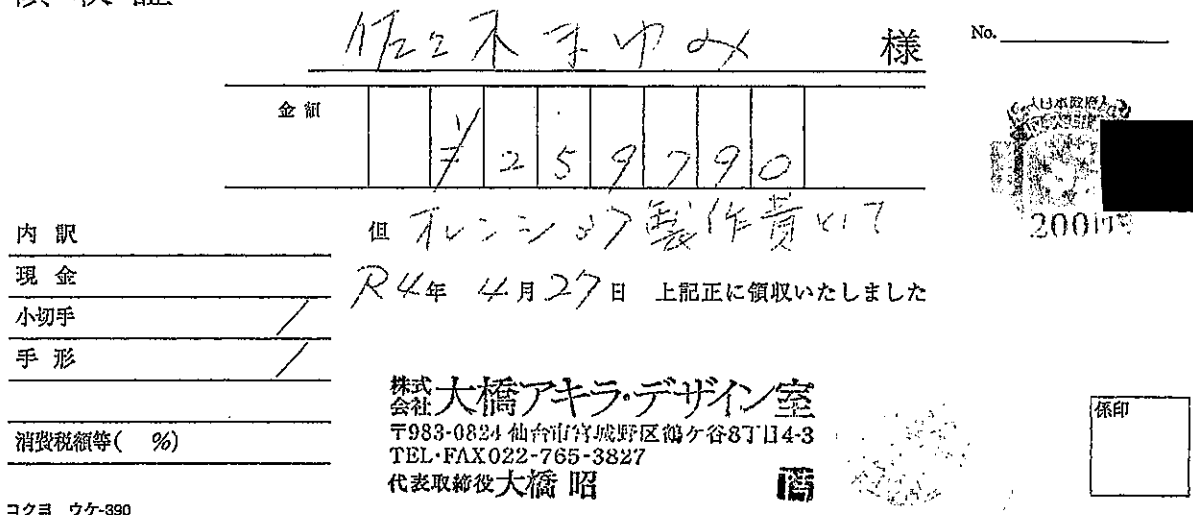 佐々木まゆみ 様
No.
金額 ¥259790
但 オレンジ 製作費として
R4年 4月27日 上記正に領収いたしました
内訳
現金
小切手 /
手形 /
消費税額等( %)
日本政府
200円
株式会社大橋アキラ・デザイン室
〒983-0824 仙台市宮城野区鶴ケ谷8丁目4-3
TEL・FAX 022-765-3827
代表取締役 大橋 昭
係印
コクヨ ウケ-390